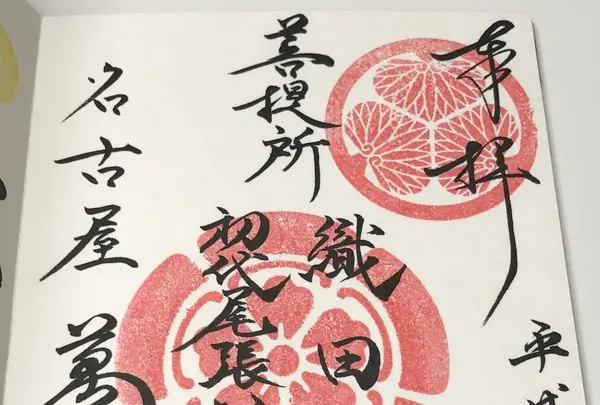 奉拝
平成
菩提所
織田
初代尾張
名古屋
萬